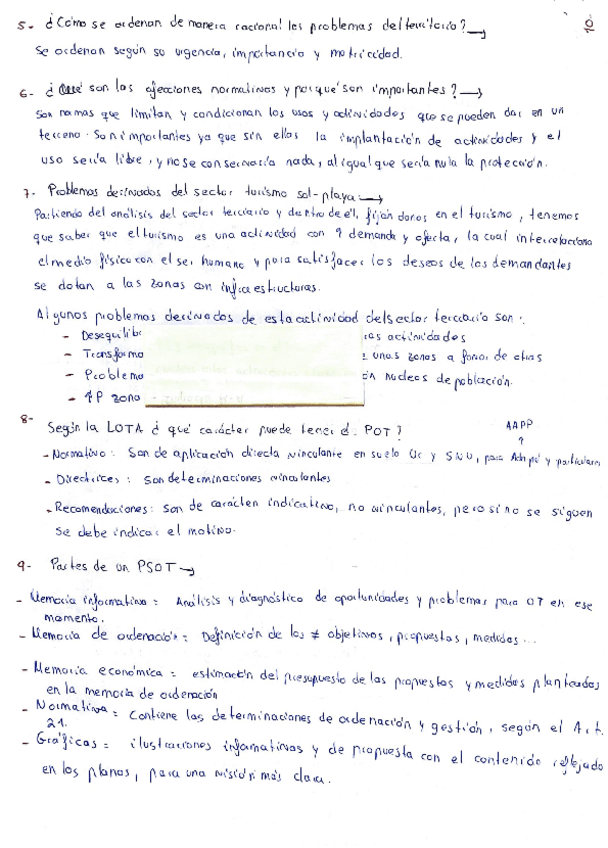 5- ¿Cómo se ordenan de manera racional los problemas del territorio? →
Se ordenan según su urgencia, importancia y motricidad.
6- ¿Qué son las afecciones normativas y porqué son importantes? →
Son normas que limitan y condicionan los usos y actividades que se pueden dar en un
terreno. Son importantes ya que sin ellas la implantación de actividades y el
uso sería libre, y no se conservaría nada, al igual que sería nula la protección.
7- Problemas derivados del sector turismo sol-playa →
Partiendo del análisis del sector terciario y dentro de él, fijándonos en el turismo, tenemos
que saber que el turismo es una actividad con ↑ demanda y oferta, la cual interrelaciona
el medio físico con el ser humano y para satisfacer los deseos de los demandantes
se dotan a las zonas con infraestructuras.
Algunos problemas derivados de esta actividad del sector terciario son:
- Desequilib ras actividades
- Transforma unas zonas a favor de otras
- Problema ón nucleos de población.
- ↑P zona
8- Según la LOTA ¿qué carácter puede tener el POT?
AAPP
↑
- Normativo: Son de aplicación directa vinculante en suelo Uc y SNU, para Adm pú y particulares
- Directrices: Son determinaciones vinculantes
- Recomendaciones: Son de carácter indicativo, no vinculantes, pero si no se siguen
se debe indicar el motivo.
9- Partes de un PSOT →
- Memoria informativa: Análisis y diagnóstico de oportunidades y problemas para OT en ese
momento.
- Memoria de ordenación: Definición de los ≠ objetivos, propuestas, medidas...
- Memoria económica: estimación del presupuesto de las propuestas y medidas planteadas
en la memoria de ordenación
- Normativa: Contiene las determinaciones de ordenación y gestión, según el Art.
21.
- Gráficas: ilustraciones informativas y de propuesta con el contenido reflejado
en los planos, para una visión más clara.